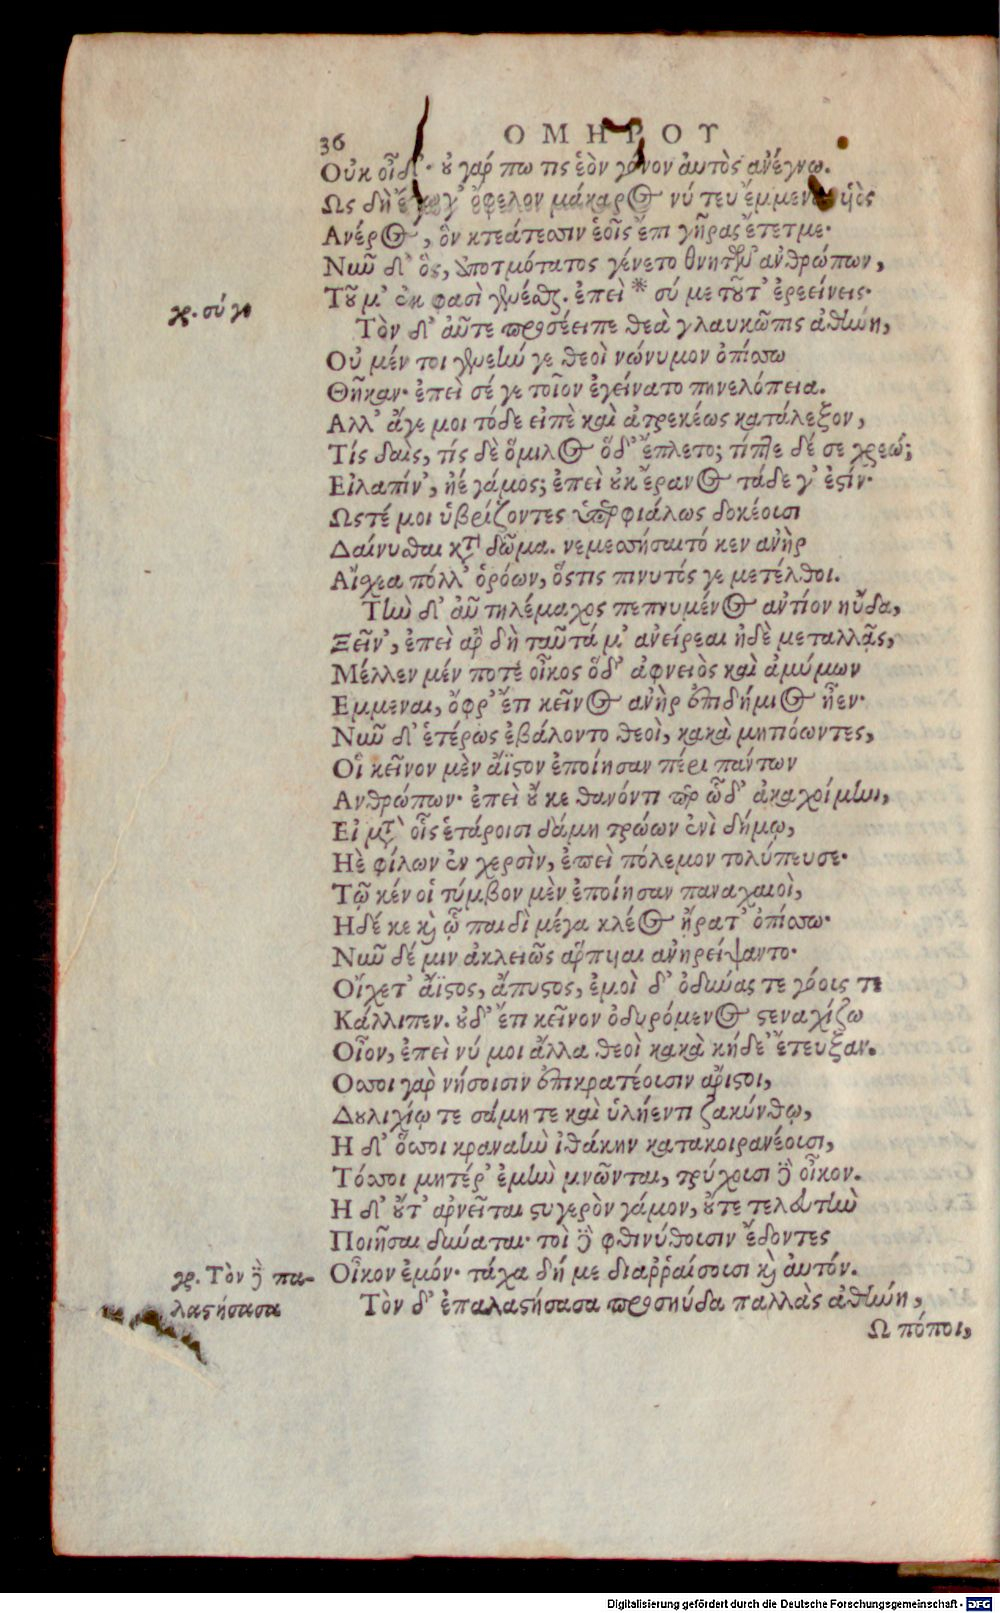 36
ΟΜΗΡΟΥ
Οὐκ οἶδ'· οὐ γάρ πω τις ἑὸν γόνον αὐτὸς ἀνέγνω.
Ως δὴ ἔγωγ' ὄφελον μάκαρος νύ τευ ἔμμεναι υἱὸς
Ανέρος, ὃν κτεάτεσσιν ἑοῖς ἔπι γῆρας ἔτετμε·
Νῦν δ' ὃς, ἀποτμότατος γένετο θνητῶν ἀνθρώπων,
Τοῦ μ' ἐκ φασὶ γενέσθαι. ἐπεὶ * σύ με τοῦτ' ἐρεείνεις·
γρ. σύ γε
Τὸν δ' αὖτε προσέειπε θεὰ γλαυκῶπις ἀθήνη,
Οὐ μέν τοι γενεήν γε θεοὶ νώνυμον ὀπίσσω
Θῆκαν· ἐπεὶ σέ γε τοῖον ἐγείνατο πηνελόπεια.
Αλλ' ἄγε μοι τόδε εἰπὲ καὶ ἀτρεκέως κατάλεξον,
Τίς δαὶς, τίς δὲ ὅμιλος ὅδ' ἔπλετο; τίπτε δέ σε χρεώ;
Εἰλαπίν', ἠέ γάμος; ἐπεὶ οὐκ ἔρανος τάδε γ' ἐστίν·
Ωστέ μοι ὑβρίζοντες ὑπερφιάλως δοκέουσι
Δαίνυσθαι κατὰ δῶμα. νεμεσσήσαιτό κεν ἀνὴρ
Αἴσχεα πόλλ' ὁρόων, ὅστις πινυτός γε μετέλθοι.
Τὴν δ' αὖ τηλέμαχος πεπνυμένος ἀντίον ηὔδα,
Ξεῖν', ἐπεὶ ἂρ δὴ ταῦτά μ' ἀνείρεαι ἠδὲ μεταλλᾷς,
Μέλλεν μέν ποτε οἶκος ὅδ' ἀφνειὸς καὶ ἀμύμων
Εμμεναι, ὄφρ' ἔπι κεῖνος ἀνὴρ ἐπιδήμιος ἦεν·
Νῦν δ' ἑτέρως ἐβάλοντο θεοὶ, κακὰ μητιόωντες,
Οἳ κεῖνον μὲν ἄϊστον ἐποίησαν πέρι πάντων
Ανθρώπων· ἐπεὶ οὔ κε θανόντι περ ὧδ' ἀκαχοίμην,
Εἰ μετὰ οἷς ἑτάροισι δάμη τρώων ἐνὶ δήμῳ,
Ηὲ φίλων ἐν χερσὶν, ἐπεὶ πόλεμον τολύπευσε·
Τῷ κέν οἱ τύμβον μὲν ἐποίησαν παναχαιοὶ,
Ηδέ κε καὶ ᾧ παιδὶ μέγα κλέος ἤρατ' ὀπίσσω·
Νῦν δέ μιν ἀκλειῶς ἅρπυιαι ἀνηρείψαντο·
Οἴχετ' ἄϊστος, ἄπυστος, ἐμοὶ δ' ὀδύνας τε γόους τε
Κάλλιπεν. οὐδ' ἔτι κεῖνον ὀδυρόμενος στεναχίζω
Οἶον, ἐπεὶ νύ μοι ἄλλα θεοὶ κακὰ κήδε' ἔτευξαν.
Οσσοι γὰρ νήσοισιν ἐπικρατέουσιν ἄριστοι,
Δουλιχίῳ τε σάμῃ τε καὶ ὑλήεντι ζακύνθῳ,
Η δ' ὅσσοι κραναὴν ἰθάκην κατακοιρανέουσι,
Τόσσοι μητέρ' ἐμὴν μνῶνται, τρύχουσι δὲ οἶκον.
Η δ' οὔτ' ἀρνεῖται στυγερὸν γάμον, οὔτε τελευτὴν
Ποιῆσαι δύναται· τοὶ δὲ φθινύθουσιν ἔδοντες
Οἶκον ἐμόν· τάχα δή με διαῤῥαίσουσι καὶ αὐτόν.
γρ. Τὸν δὲ πα-
λαστήσασα
Τὸν δ' ἐπαλαστήσασα προσηύδα παλλὰς ἀθήνη,
Ω πόποι,
Digitalisierung gefördert durch die Deutsche Forschungsgemeinschaft - DFG